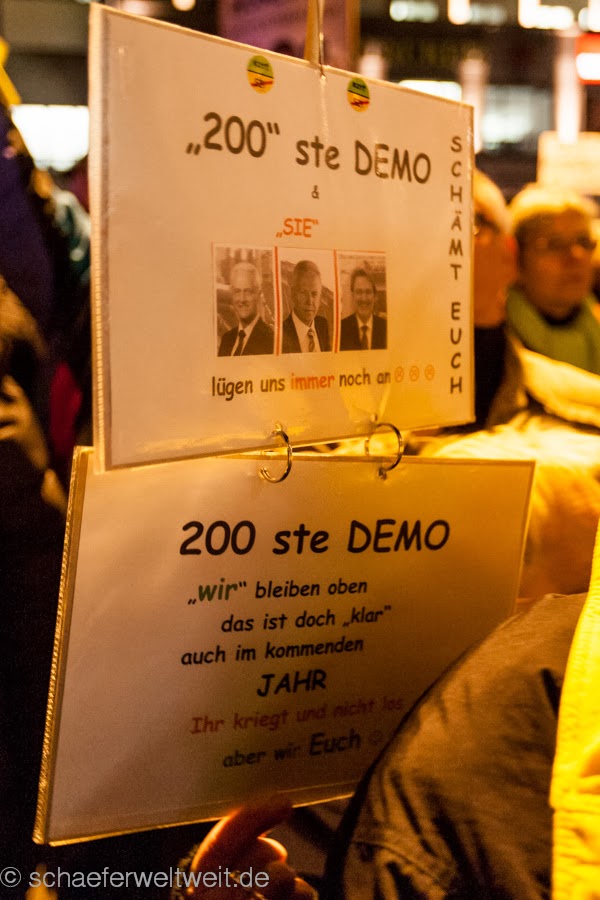 „200“ ste DEMO
&
„SIE“
lügen uns immer noch an ☹ ☹ ☹
SCHÄMT EUCH
200 ste DEMO
„wir“ bleiben oben
das ist doch „klar“
auch im kommenden
JAHR
Ihr kriegt und nicht los
aber wir Euch
© schaeferweltweit.de